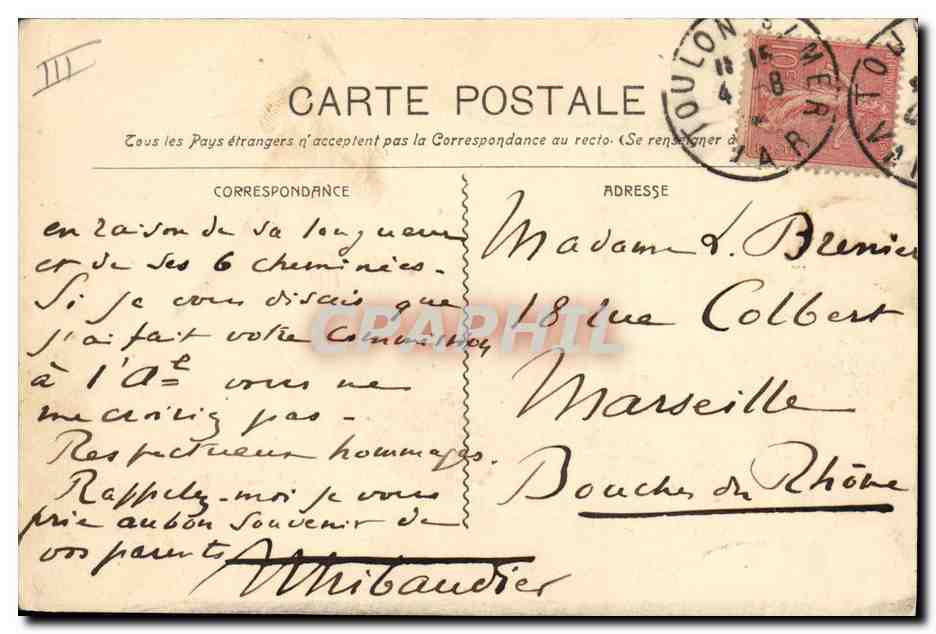 III
TOULON S MER
11 15
4 - 8
VAR
TO
VA
10
CARTE POSTALE
Tous les Pays étrangers n'acceptent pas la Correspondance au recto. (Se renseigner à
CORRESPONDANCE
en raison de sa longueur
et de ses 6 cheminées.
Si je vous disais que
j'ai fait votre commission
à l'Al vous ne
me croiriez pas.
Respectueux hommages.
Rappelez-moi je vous
prie au bon souvenir de
vos parents
AThibaudier
ADRESSE
Madame L. Brenier
18 rue Colbert
Marseille
Bouches du Rhône
CPAPHIL